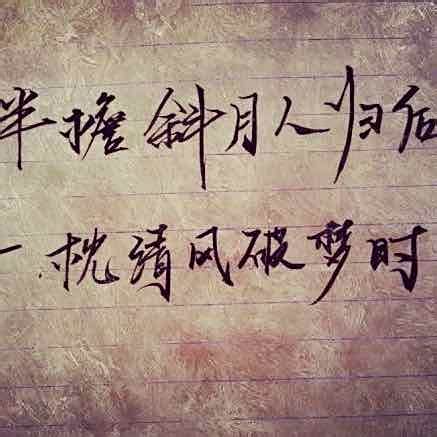 半檐斜月人归后
一枕清风破梦时